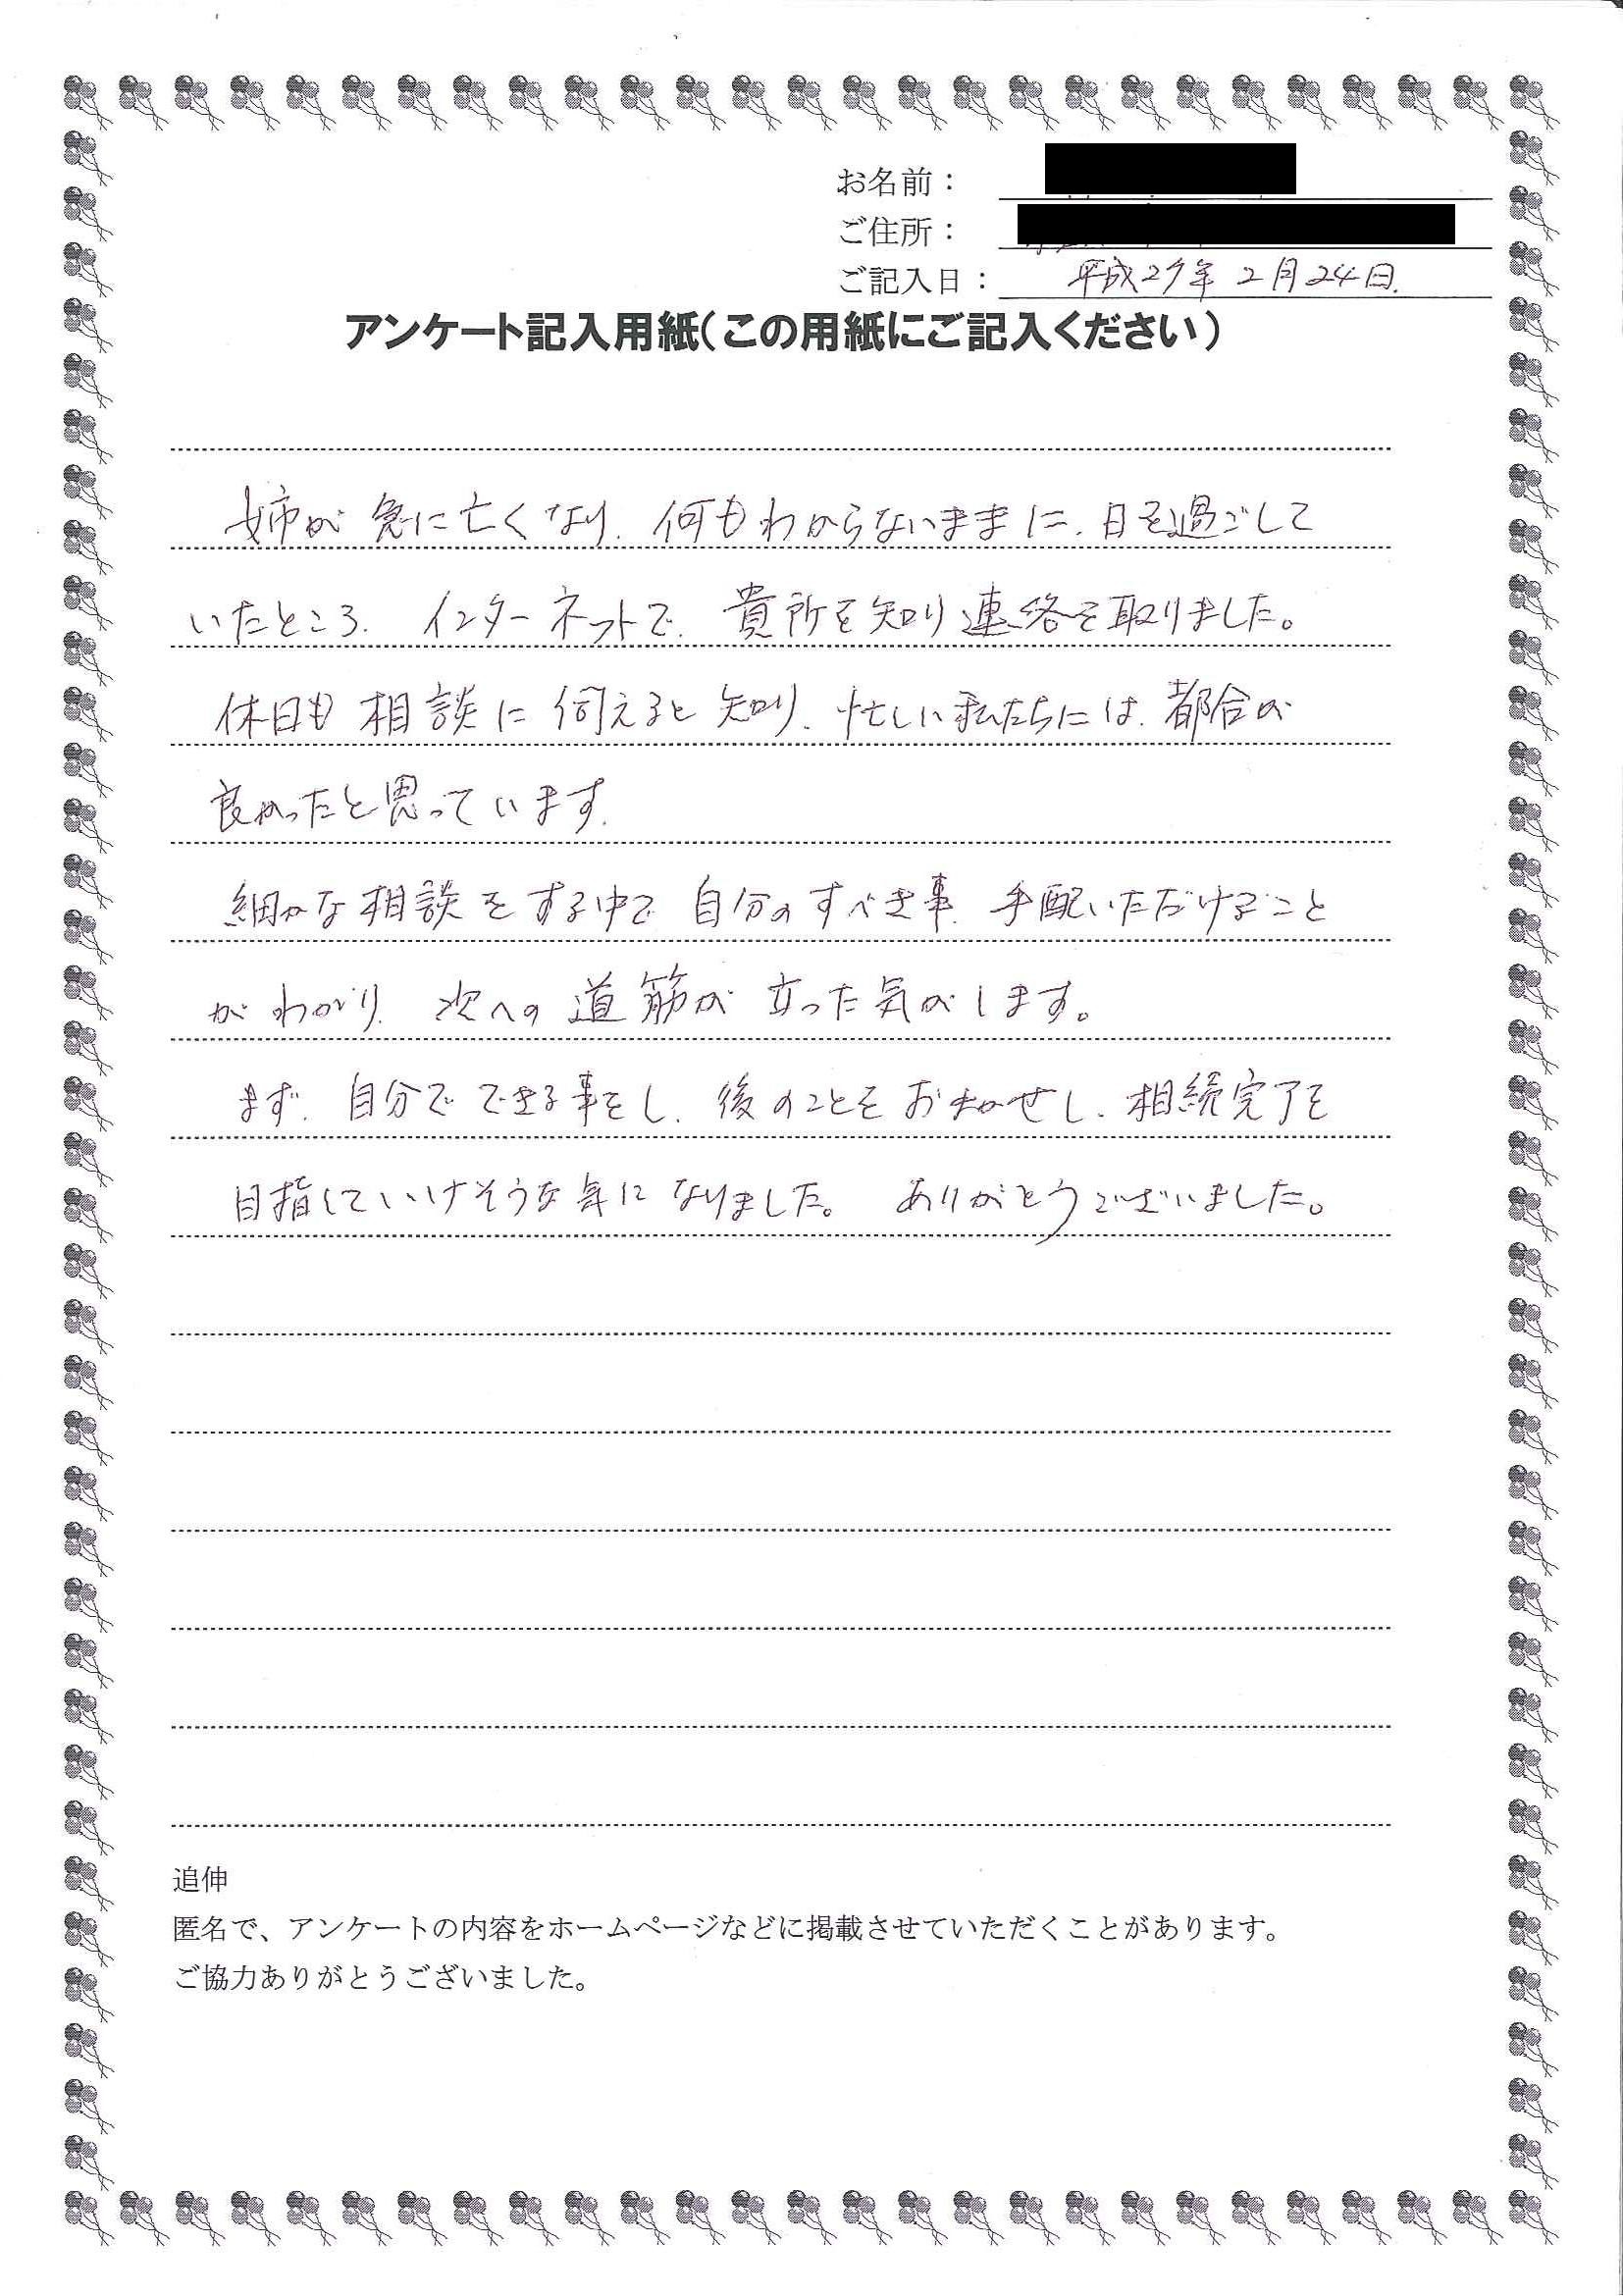 お名前：
ご住所：
ご記入日： 平成27年 2月24日.
アンケート記入用紙(この用紙にご記入ください)
姉が 急に亡くなり、何もわからないままに、日を過ごして
いたところ、インターネットで、貴所を知り連絡を取りました。
休日も相談に伺えると知り、忙しい私たちには、都合が
良かったと思っています.
細かな相談をする中で 自分のすべき事、手配いただけること
がわかり、次への道筋が立った気がします。
まず、自分でできる事をし、後のことをおまかせし、相続完了を
目指していけそうな気になりました。 ありがとうございました。
追伸
匿名で、アンケートの内容をホームページなどに掲載させていただくことがあります。
ご協力ありがとうございました。